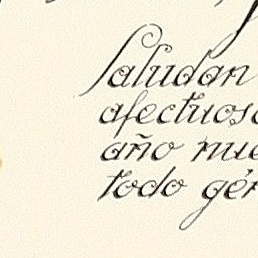 Saludan
afectuos
año nue
todo gén